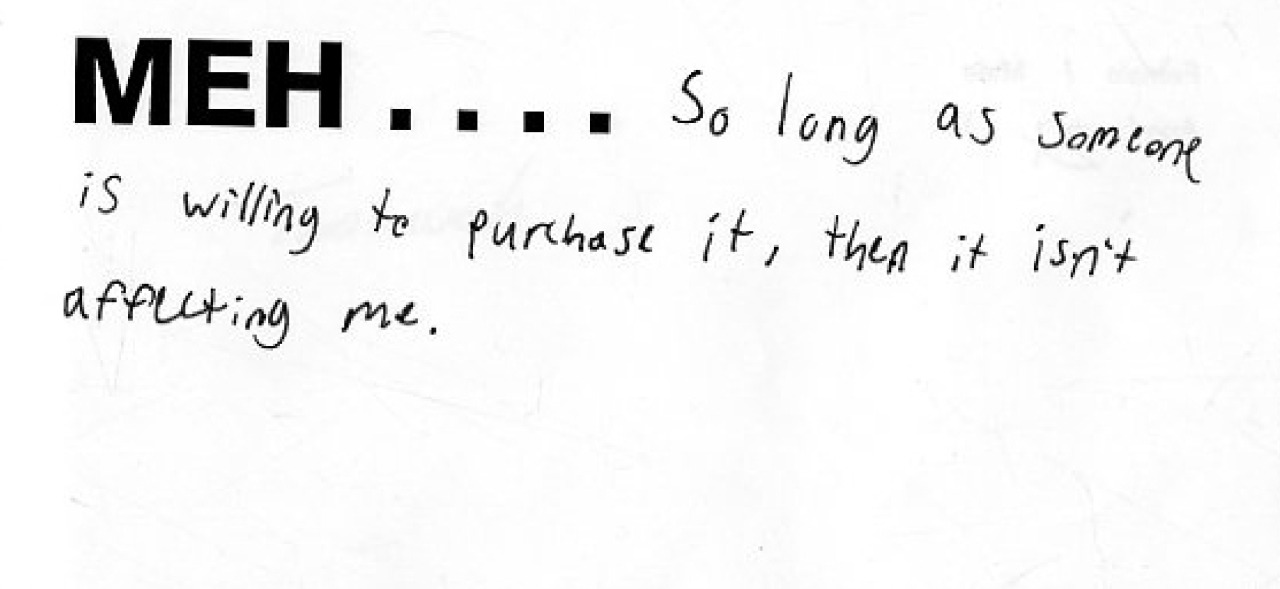 MEH.... So long as someone
is willing to purchase it, then it isn't
affecting me.